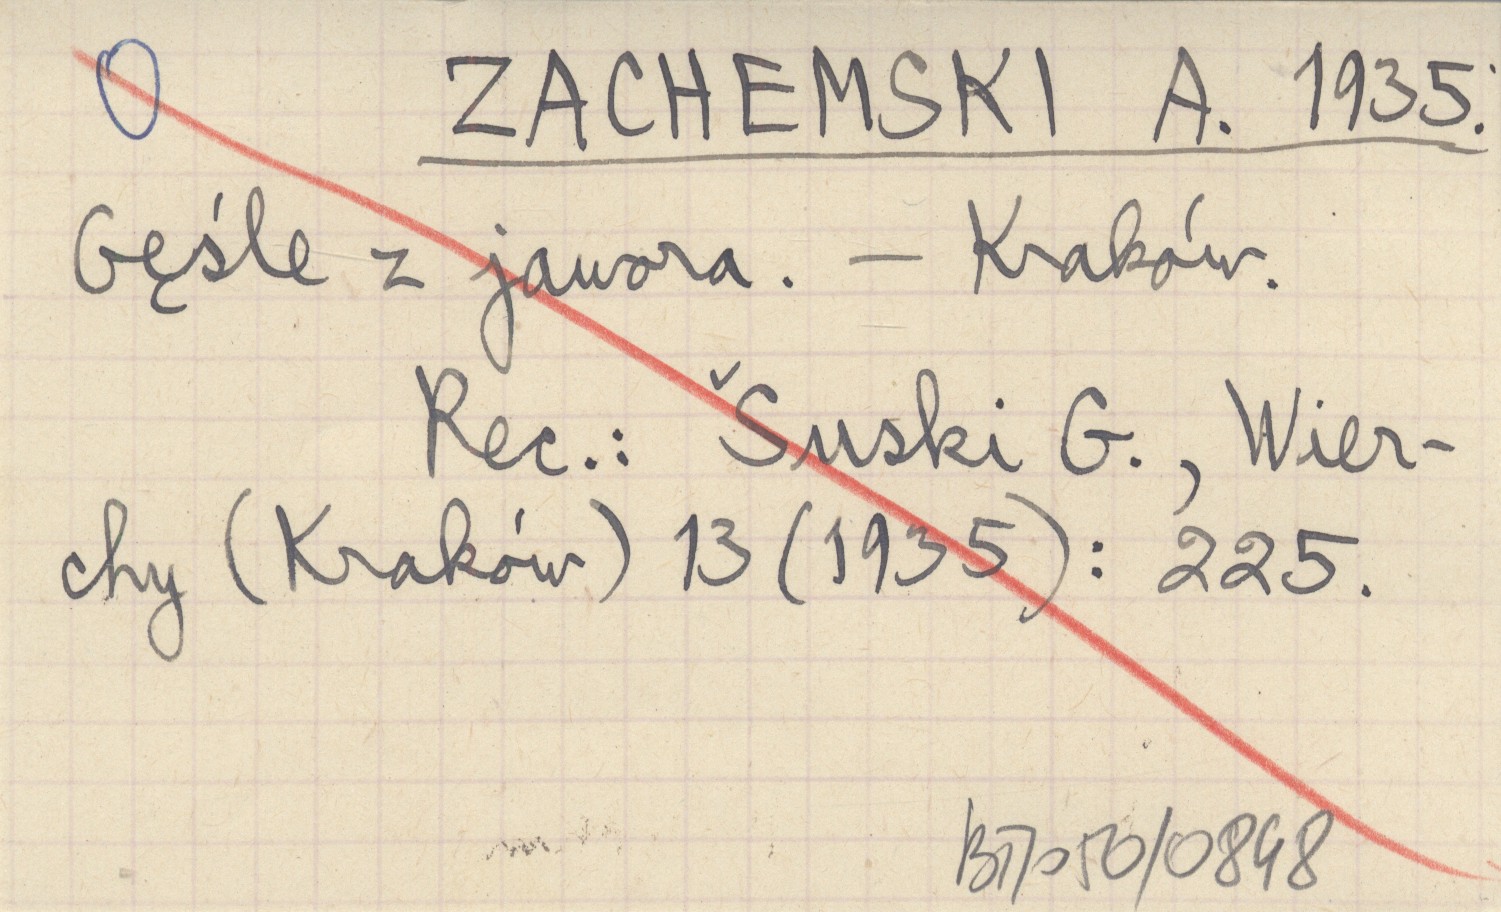 O
ZACHEMSKI A. 1935.
Gęśle z jawora. — Kraków.
Rec.: Šuski G., Wier-
chy (Kraków) 13 (1935): 225.